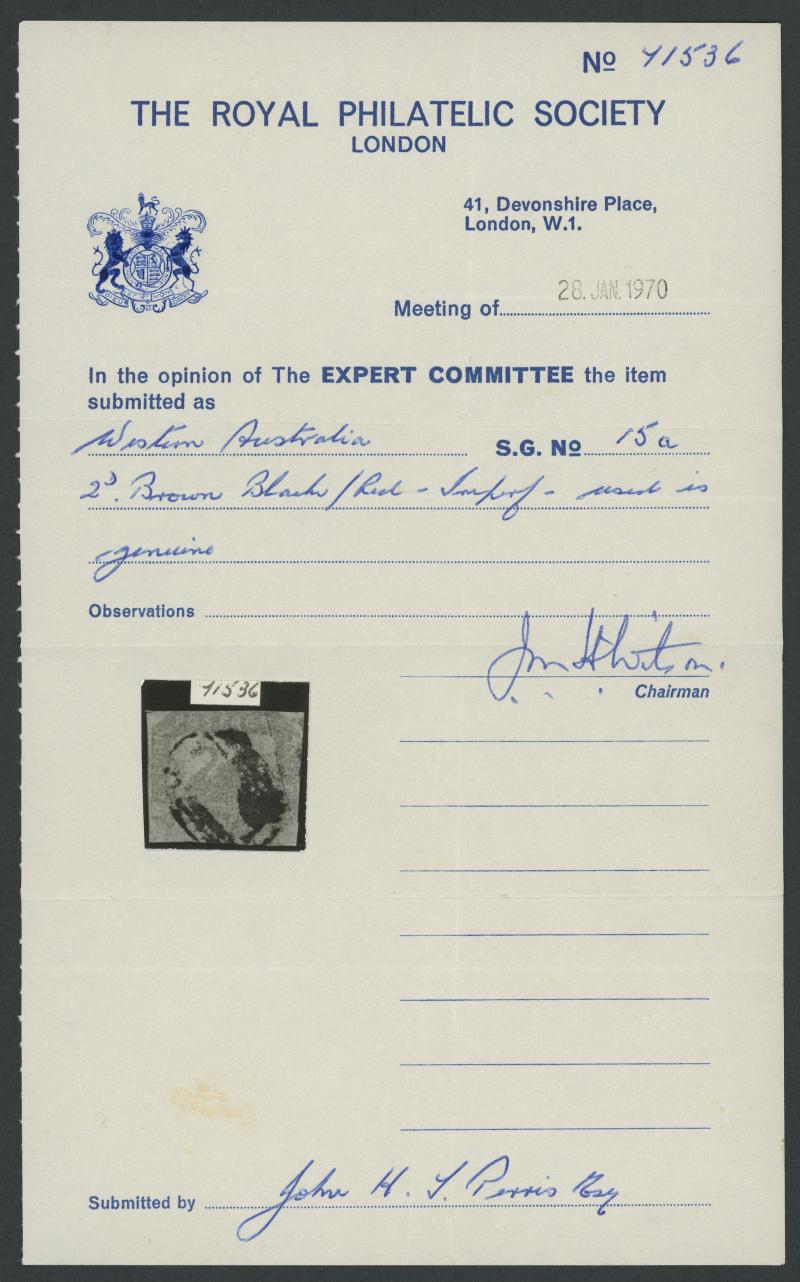 Nº 71536
THE ROYAL PHILATELIC SOCIETY
LONDON
41, Devonshire Place,
London, W.1.
Meeting of 28. JAN. 1970
In the opinion of The EXPERT COMMITTEE the item
submitted as
Western Australia S.G. Nº 15a
2d. Brown Black/Red - Imperf - used is
genuine
Observations
Chairman
71536
Submitted by John H. Perris Esq